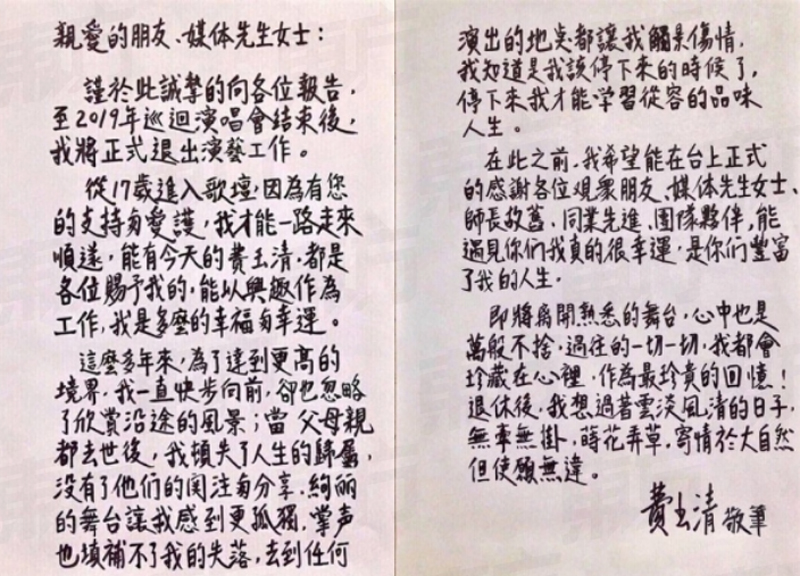 親愛的朋友、媒体先生女士：
謹於此誠摯的向各位報告，
至2019年巡迴演唱會結束後，
我將正式退出演藝工作。
從17歲進入歌壇，因為有您
的支持与愛護，我才能一路走來
順遂，能有今天的費玉清，都是
各位賜予我的，能以興趣作為
工作，我是多麼的幸福与幸運。
這麼多年來，為了達到更高的
境界，我一直快步向前，卻也忽略
了欣賞沿途的風景；當父母親
都去世後，我頓失了人生的歸屬，
沒有了他們的関注与分享，絢丽
的舞台讓我感到更孤獨，掌声
也填補不了我的失落，去到任何
演出的地点都讓我觸景傷情，
我知道是我該停下來的時候了，
停下來我才能学習從容的品味
人生。
在此之前，我希望能在台上正式
的感謝各位观衆朋友、媒体先生女士、
師長故舊、同業先進、團隊夥伴，能
遇見你们我真的很幸運，是你们豐富
了我的人生，
即將離開熟悉的舞台，心中也是
萬般不捨，過往的一切一切，我都會
珍藏在心裡，作為最珍貴的回憶！
退休後，我想過著雲淡風清的日子，
無牽無掛，蒔花弄草，寄情於大自然
但使願無違。
費玉清 敬筆